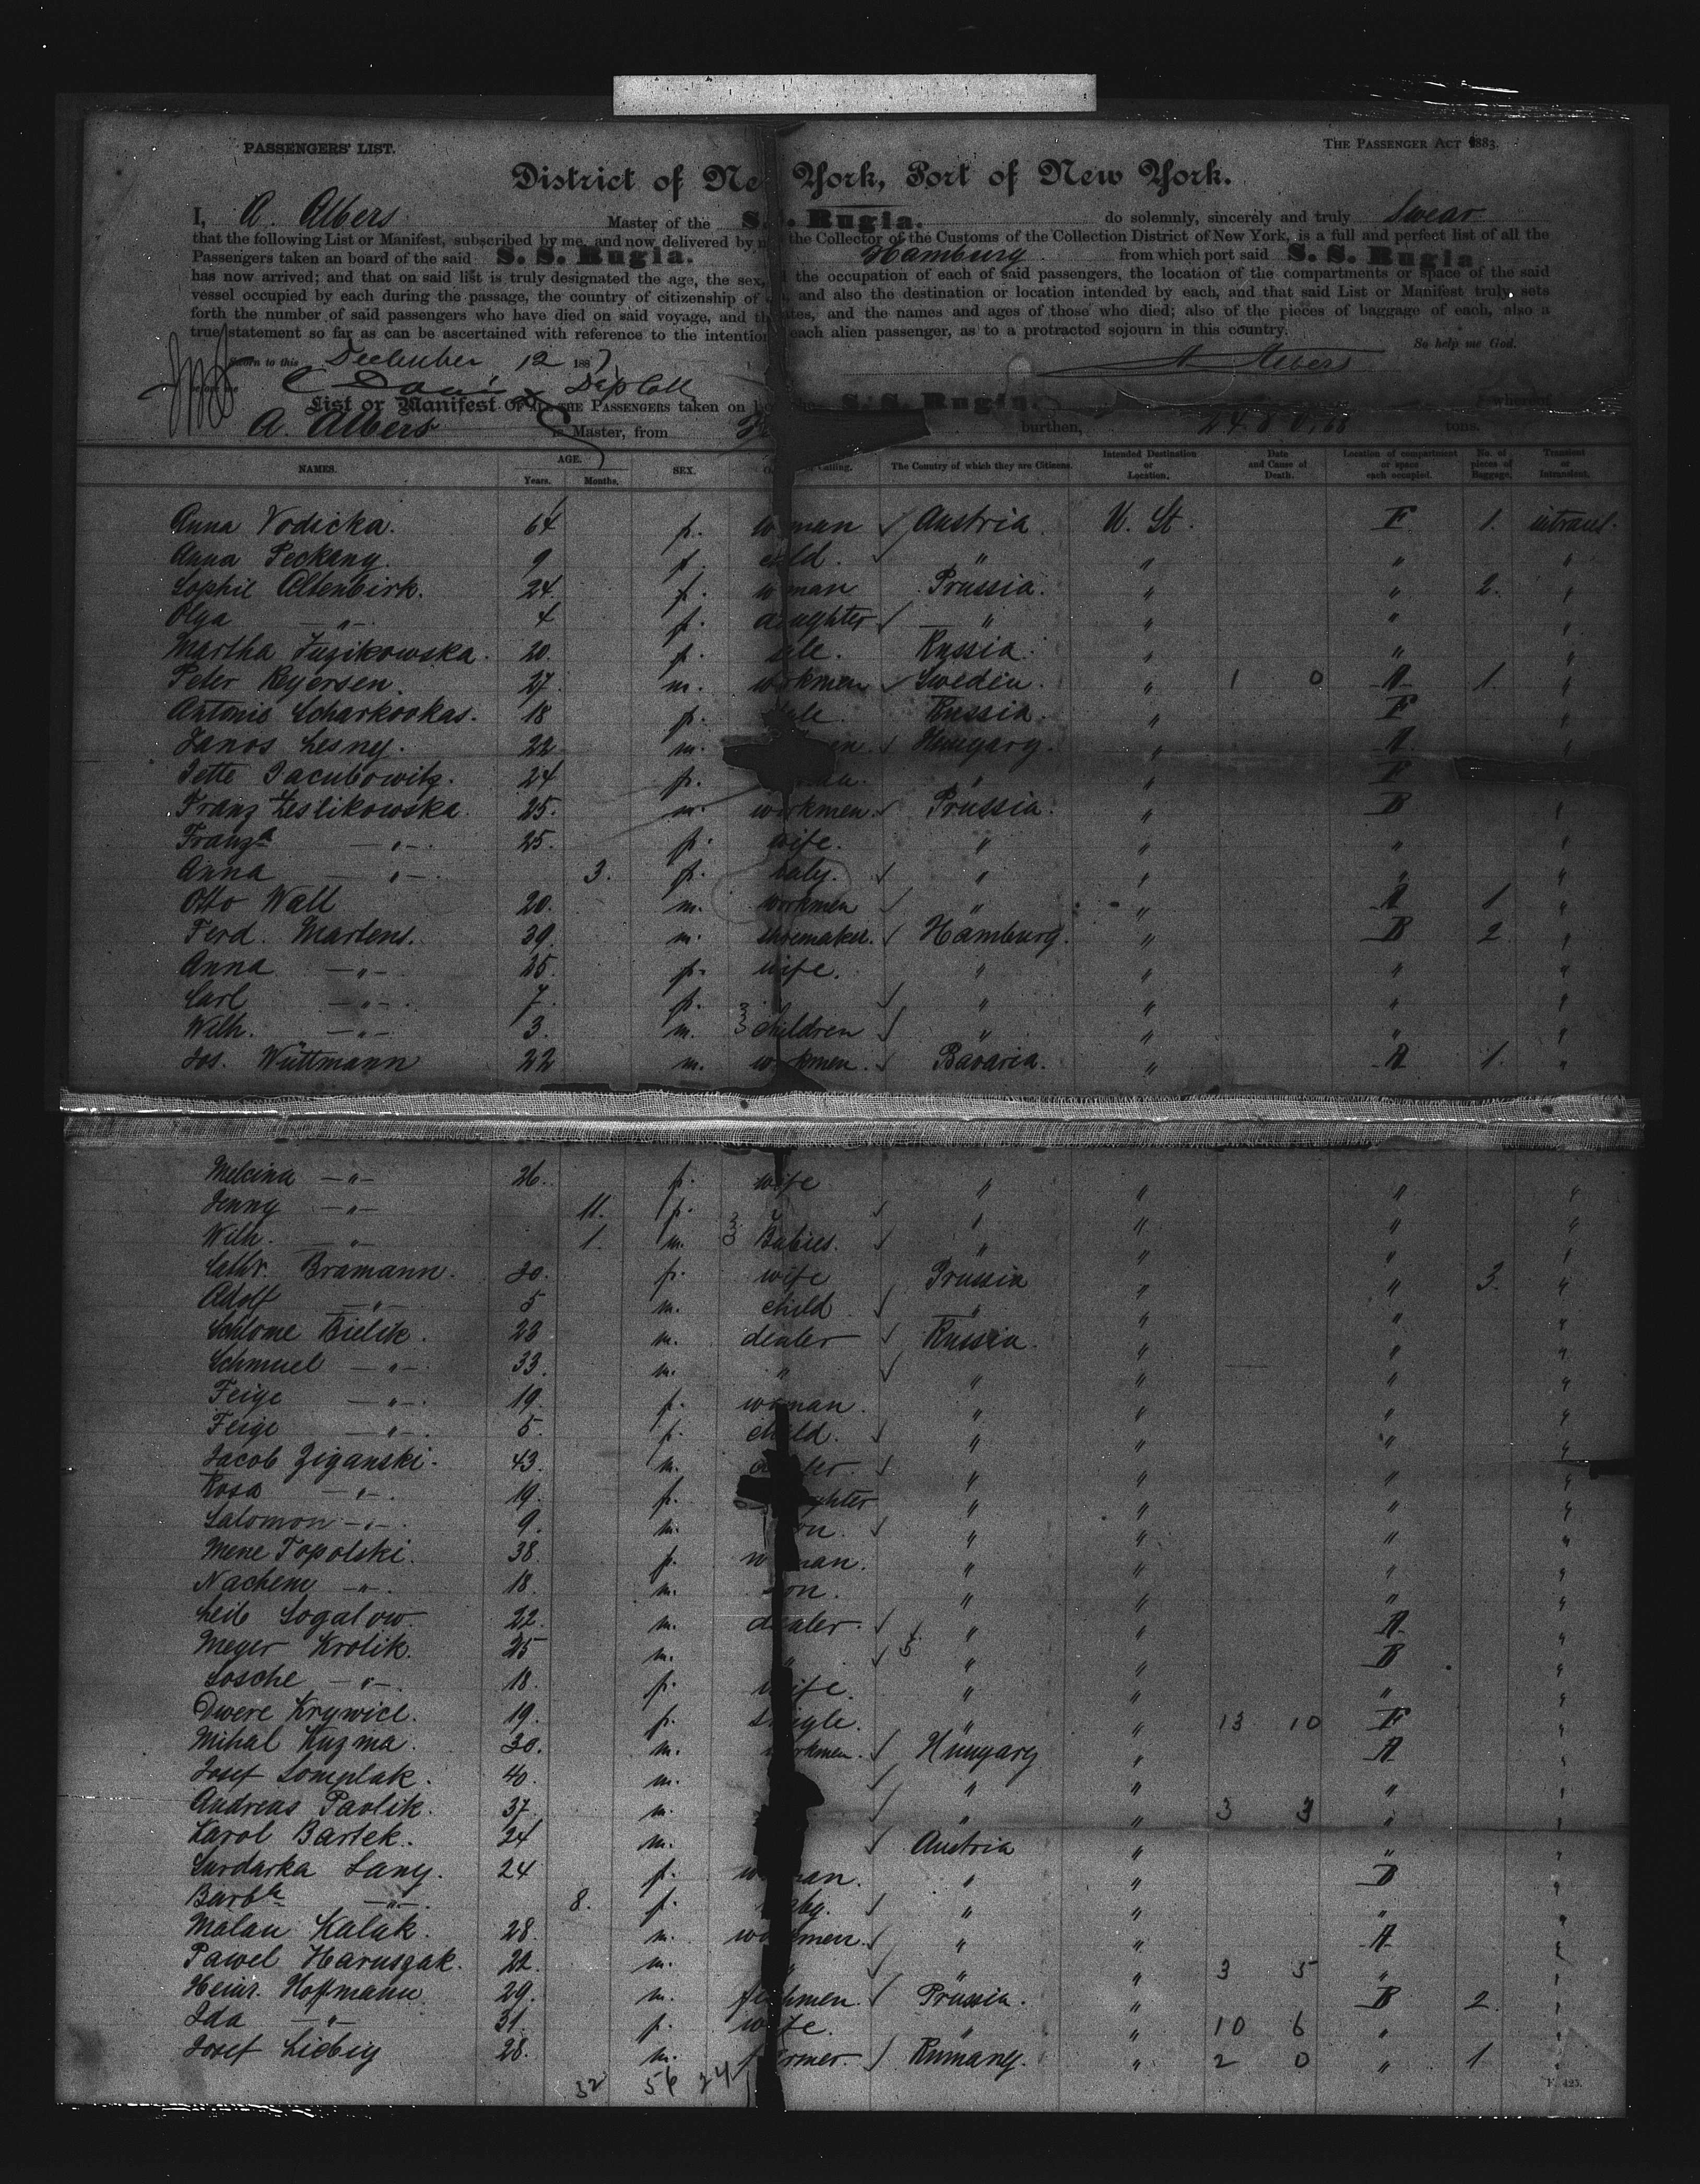 PASSENGERS' LIST.
THE PASSENGER ACT 1883.
District of Ne York, Port of New York.
I, A. Albers Master of the S. S. Rugia. do solemnly, sincerely and truly swear
that the following List or Manifest, subscribed by me, and now delivered by me the Collector of the Customs of the Collection District of New York, is a full and perfect list of all the
Passengers taken on board of the said S. S. Rugia. Hamburg from which port said S. S. Rugia
has now arrived; and that on said list is truly designated the age, the sex, the occupation of each of said passengers, the location of the compartments or space of the said
vessel occupied by each during the passage, the country of citizenship of and also the destination or location intended by each, and that said List or Manifest truly sets
forth the number of said passengers who have died on said voyage, and the dates, and the names and ages of those who died; also of the pieces of baggage of each, also a
true statement so far as can be ascertained with reference to the intention each alien passenger, as to a protracted sojourn in this country.
So help me God.
Sworn to this December 12 1887 A. Albers
before me Dep Coll
List or Manifest OF ALL THE PASSENGERS taken on S. S. Rugia. whereof
A. Albers is Master, from burthen, tons.
NAMES. AGE. Years. Months. SEX. Calling. The Country of which they are Citizens. Intended Destination or Location. Date and Cause of Death. Location of compartment or space each occupied. No. of pieces of Baggage. Transient or Intransient.
Anna Vodicka. 64 f. woman Austria U. St. F 1. intrans.
Anna Peckany. 9 f. child. " " " "
Sophie Altenbirk. 24. f. woman Prussia. " " 2. "
Olga —"— 4 f. daughter " " " "
Martha Fuzikowska. 20. f. Russia. " " "
Peter Ryersen. 27. m. workmen Sweden. " 1 0 A 1. "
Antonie Scharkookas. 18 f. Russia. " F "
Janos Lesny. 22 m. Hungary. " A "
Jette Jacubowitz. 24 f. " " F
Franz Zeslikowska. 25. m. workmen. Prussia. " B "
Franza —"— 25. f. wife. " " " "
Anna —"— 3. f. baby. " " " "
Otto Wall 20. m. workmen " " A 1 "
Ferd. Martens. 39. m. shoemaker. Hamburg. " B 2 "
Anna —"— 35. f. wife. " " " "
Carl —"— 7. f. " " " "
Wilh. —"— 3. m. children " " " "
Jos. Wüttmann 22 m. workmen. Bavaria. " A 1. "
Melcina —"— 26. f. wife " " " "
Jenny —"— 11. f. " " " "
Wilh. —"— 1. m. Babies. " " " "
Cathr. Bramann. 30. f. wife Prussia " " 3. "
Adolf —"— 5 m. child " " " "
Schlome Bielik. 23 m. dealer Russia. " " "
Schmuel —"— 33. m. " " " " "
Feige —"— 19. f. woman. " " " "
Feige —"— 5. f. child. " " " "
Jacob Ziganski. 43. m. " " " "
Rosa —"— 19. f. daughter " " " "
Salomon —"— 9. m. son. " " " "
Mene Topolski. 38. f. woman. " " " "
Nachem —"— 18. m. son. " " " "
Leib Sogalow 22. m. dealer. " " A "
Meyer Krolik. 25 m. " " " B "
Sosche —"— 18. f. wife. " " " "
Dwere Krywicl. 19. f. single. " " 13 10 F "
Mihal Kuzma. 30. m. workmen. Hungary " A "
Josef Somplak. 40. m. " " " "
Andreas Pavlik. 37. m. " " 3 3 " "
Karol Bartek. 24 m. Austria " " "
Surdarka Lany. 24 f. woman. " " B "
Barbra —"— 8. f. baby. " " " "
Malan Kaluk. 28. m. workmen. " " A "
Pawel Haruszak. 22. m. " " " 3 5 " "
Heinr. Hoffmann 29. m. Prussia. " B 2. "
Ida —"— 31. f. wife. " " 10 6 " "
Josef Liebig 28. m. farmer. Rumany. " 2 0 " 1 "
32 56 24
F. 425.